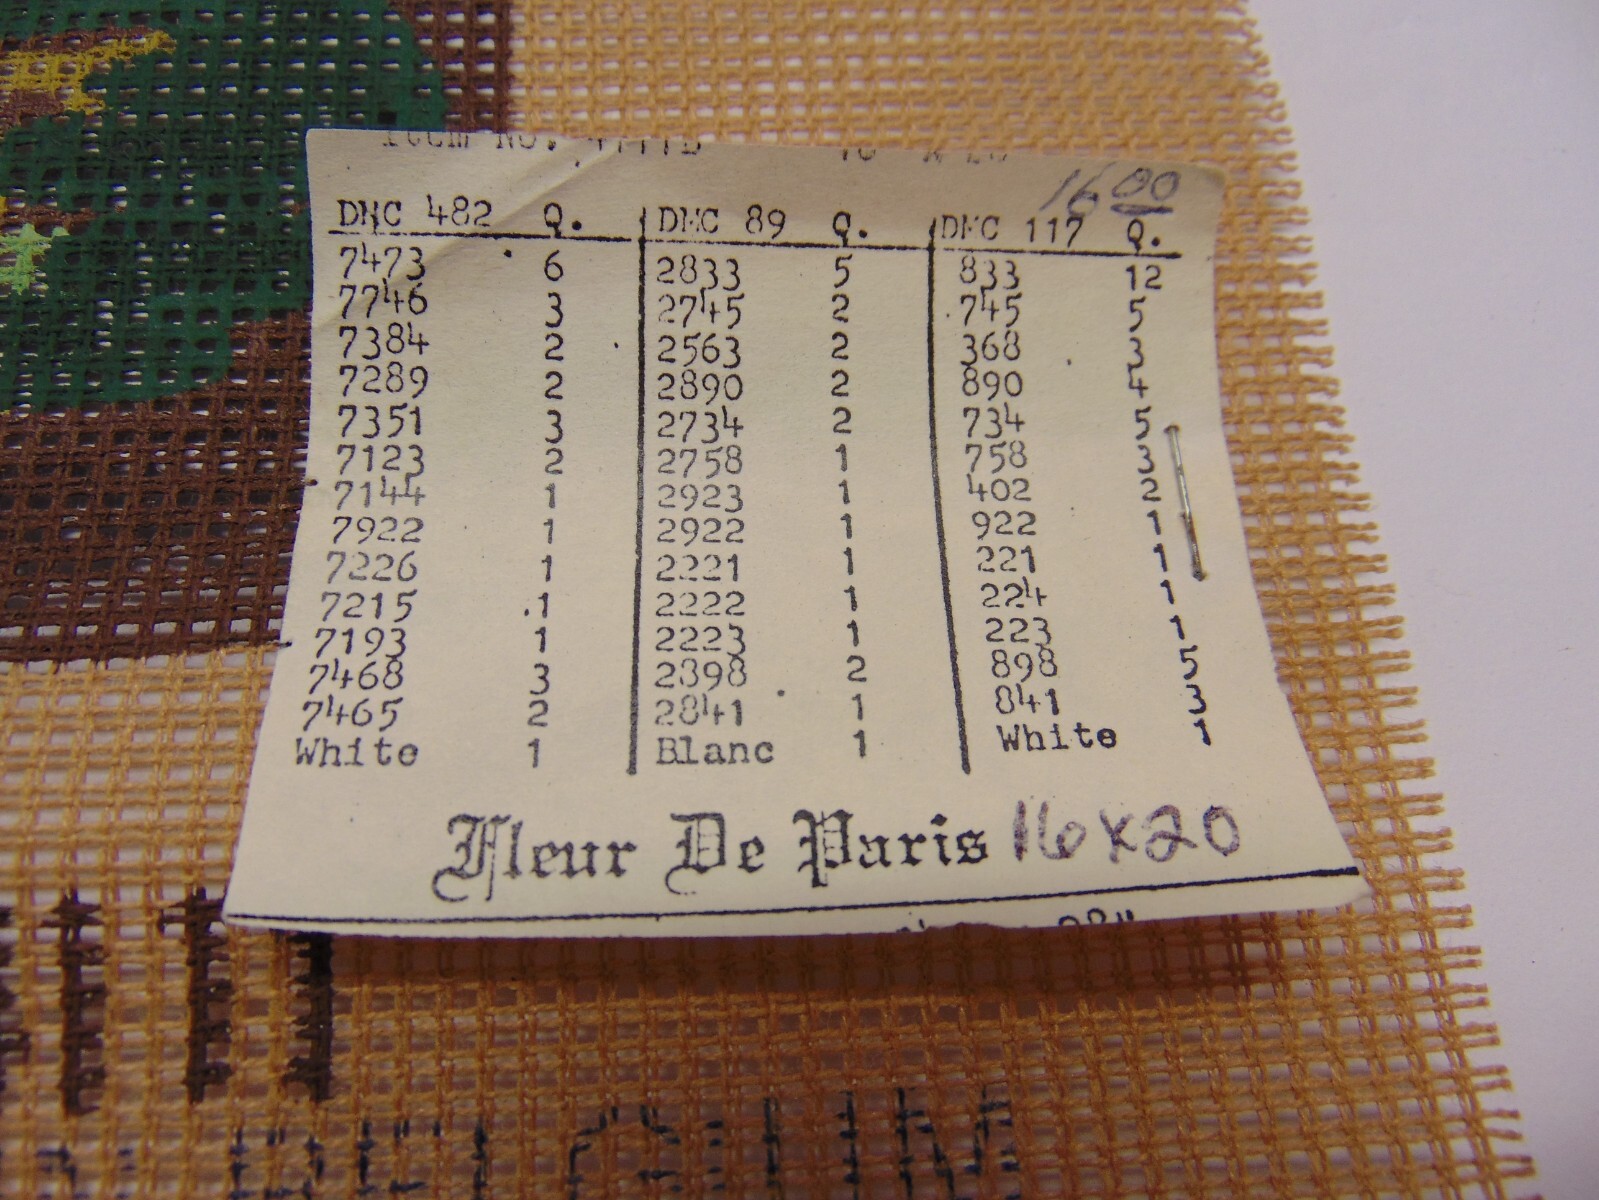 Item No.
16 00
DMC 482 Q. DMC 89 Q. DMC 117 Q.
7473 6 2833 5 833 12
7746 3 2745 2 745 5
7384 2 2563 2 368 3
7289 2 2890 2 890 4
7351 3 2734 2 734 5
7123 2 2758 1 758 3
7144 1 2923 1 402 2
7922 1 2922 1 922 1
7226 1 2221 1 221 1
7215 1 2222 1 224 1
7193 1 2223 1 223 1
7468 3 2898 2 898 5
7465 2 2841 1 841 3
White 1 Blanc 1 White 1
Fleur De Paris 16 x 20